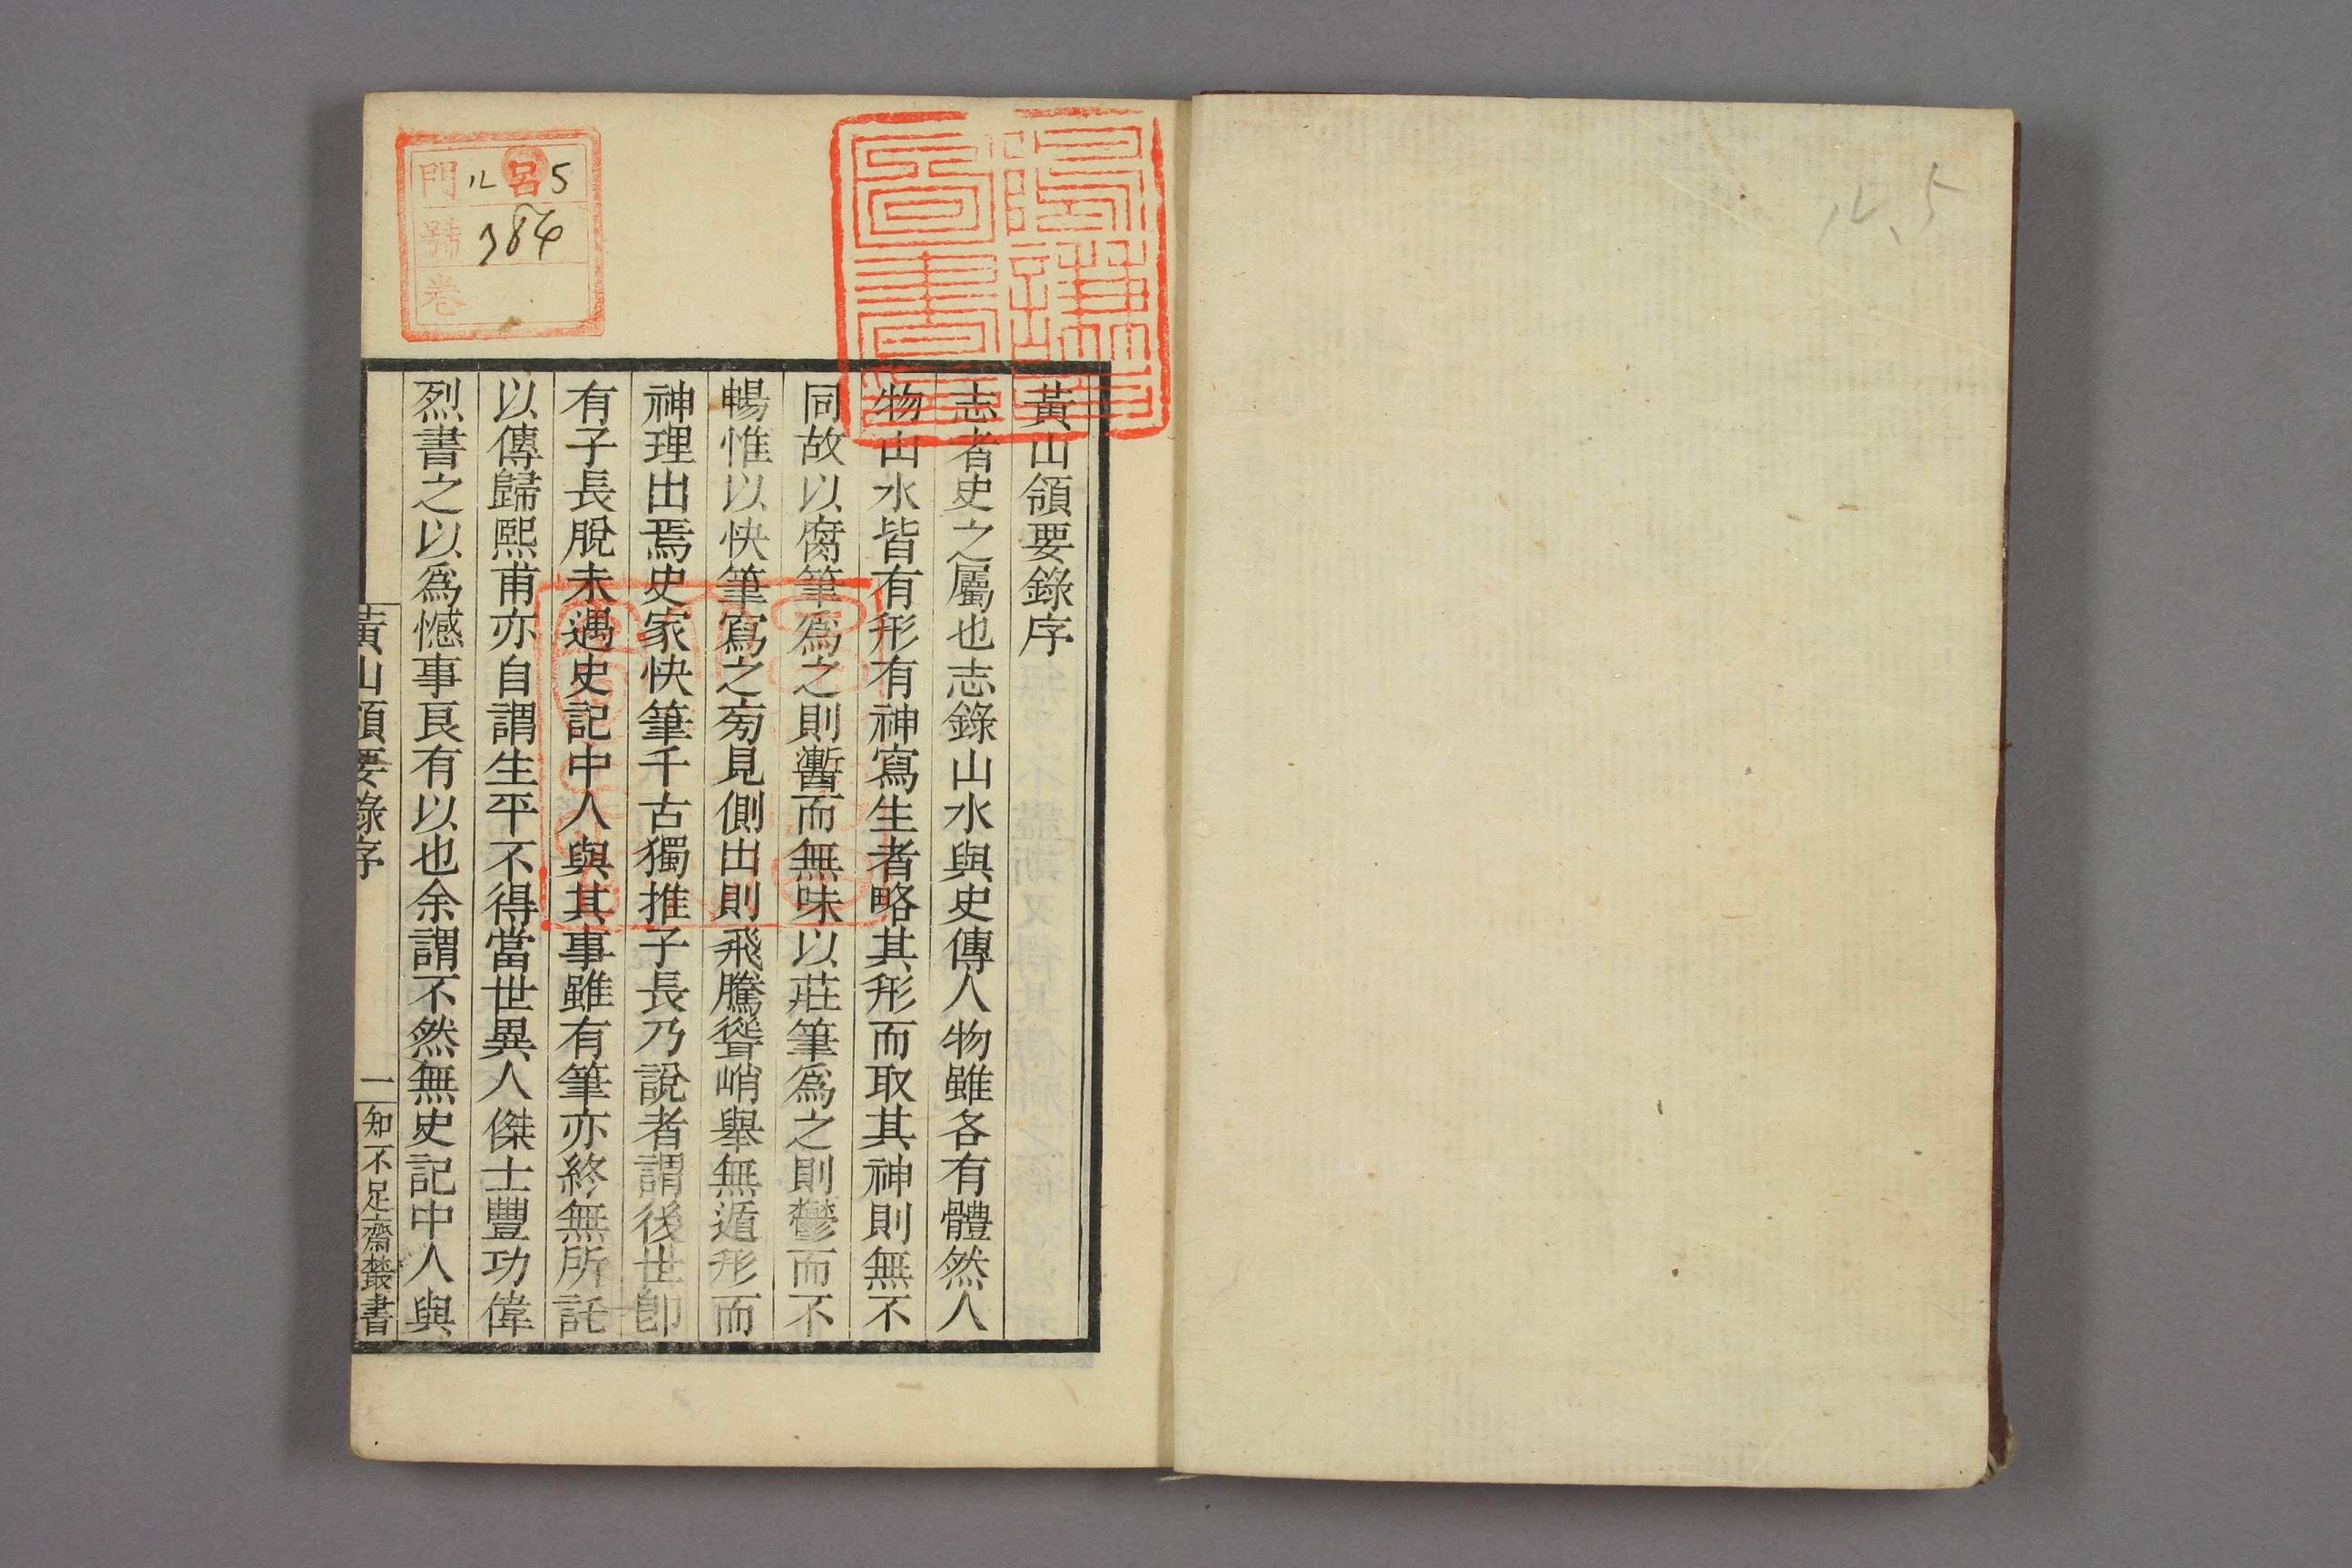 黃山領要錄序
志者史之屬也志錄山水與史傳人物雖各有體然人
物山水皆有形有神寫生者略其形而取其神則無不
同故以腐筆爲之則蹔而無味以莊筆爲之則鬱而不
暢惟以快筆寫之旁見側出則飛騰聳峭舉無遁形而
神理出焉史家快筆千古獨推子長乃說者謂後世卽
有子長脫未遇史記中人與其事雖有筆亦終無所託
以傳歸熙甫亦自謂生平不得當世異人傑士豐功偉
烈書之以爲憾事良有以也余謂不然無史記中人與
黃山領要錄序
一
知不足齋叢書
門 ル 呂 5
號 384
卷
ル 5